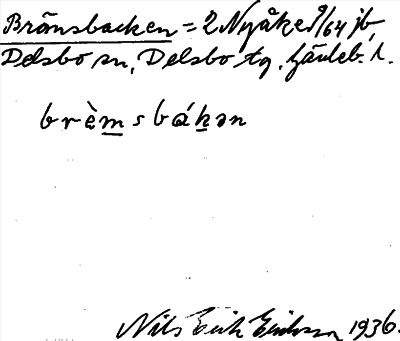 Bränsbacken = 2 Nyåker 9/64 jb,
Delsbo sn, Delsbo tg. Gävleb. l.
brèmsbákən
Nils Erik Eriksson 1936.